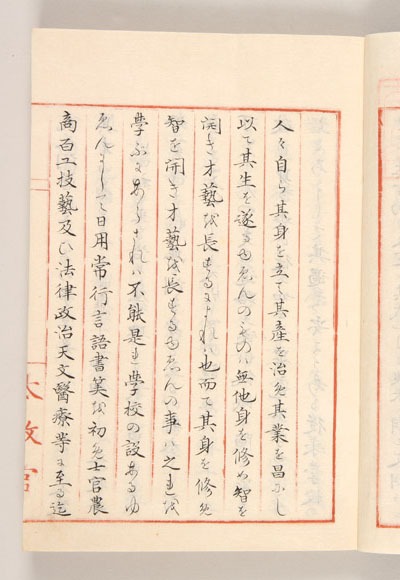 人々自ら其身を立て其産を治め其業を昌にし
以て其生を遂るゆゑんのものハ無他身を修め智を
開き才藝を長するによれハ也而て其身を修め
智を開き才藝を長するゆゑんの事ハ之を
學ふにあらされハ不能是を學校の設あるゆ
ゑんにして日用常行言語書筭を初め士官農
商百工技藝及ひ法律政治天文醫療等に至る迄
太政官